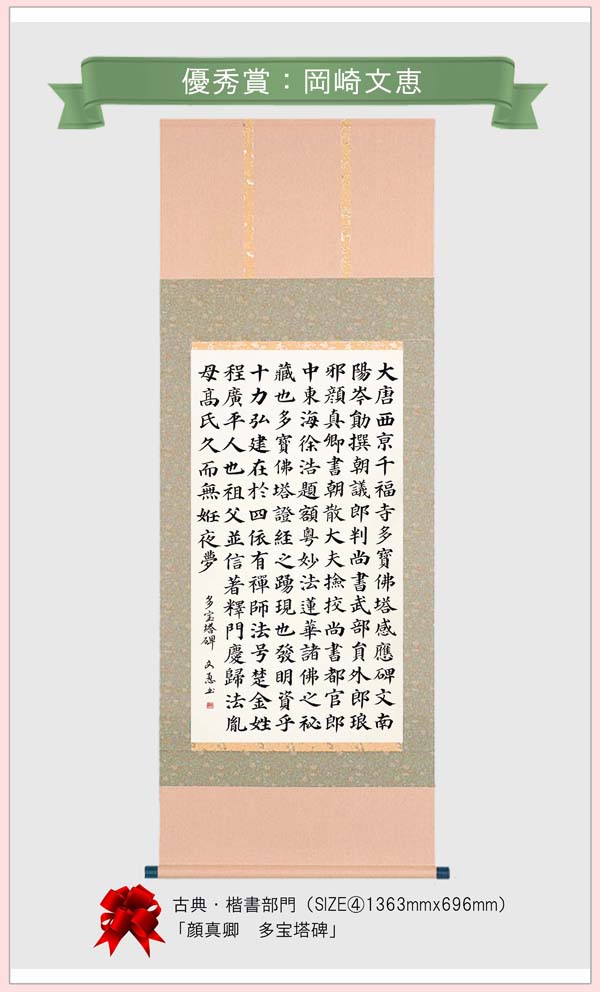 優秀賞:岡崎文恵
大唐西京千福寺多寶佛塔感應碑文南
陽岑勛撰朝議郎判尚書武部員外郎琅
邪顔真卿書朝散大夫撿挍尚書都官郎
中東海徐浩題額粤妙法蓮華諸佛之祕
藏也多寶佛塔證經之踴現也發明資乎
十力弘建在於四依有禪師法号楚金姓
程廣平人也祖父並信著釋門慶歸法胤
母髙氏久而無姙夜夢
多宝塔碑 文惠書
古典・楷書部門(SIZE④1363mmx696mm)
「顔真卿 多宝塔碑」